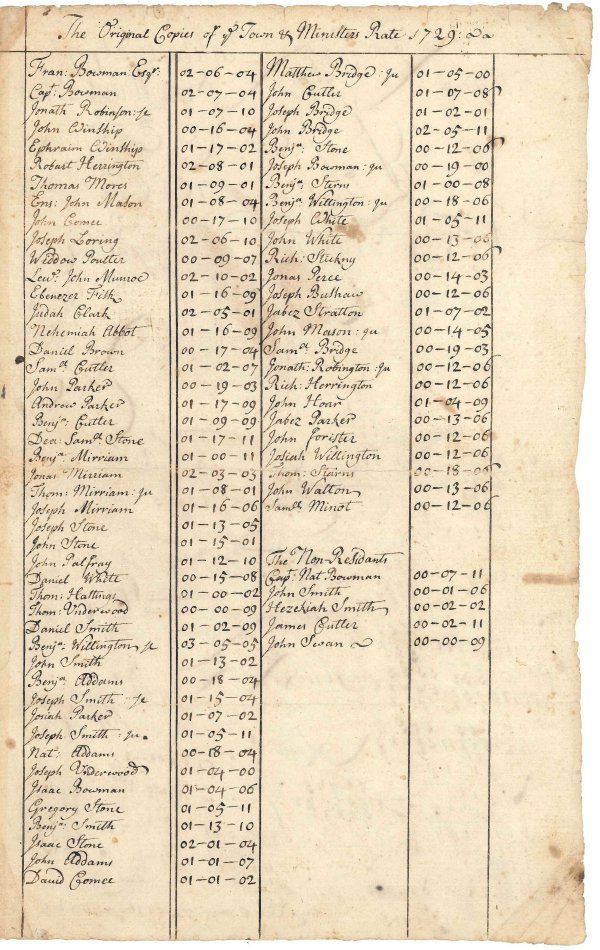 The Original Copies of yᵉ Town & Ministers Rate 1729: 
Fran: Bowman Esqʳ: 02-06-04
Capᵗ: Bowman 02-07-04
Jonath Robinson: se 01-07-10
John Winship 00-16-04
Ephraim Winship 01-17-02
Robart Herrington 02-08-01
Thomas Mores 01-09-01
Ens: John Mason 01-08-04
John Comee 00-17-10
Joseph Loring 02-06-10
Widdow Poulter 00-09-07
Lewᵗ: John Munroe 02-10-02
Ebenezer Fisk 01-16-09
Judah Clark 02-05-01
Nehemiah Abbot 01-16-09
Daniel Brown 00-17-04
Samˡˡ Cutler 01-02-07
John Parker 00-19-03
Andrew Parker 01-17-09
Benjᵃ: Cutler 01-09-09
Dea: Samˡˡ Stone 01-17-11
Benjᵃ: Mirriam 01-00-11
Jonas Mirriam 02-03-03
Thom: Mirriam: ju 01-08-01
Joseph Mirriam 01-16-06
Joseph Stone 01-13-05
John Stone 01-15-01
John Palfray 01-12-10
Daniel White 00-15-08
Thom: Hastings 01-00-02
Thom: Underwood 00-00-09
Daniel Smith 01-02-09
Benjᵃ: Willington se 03-05-05
John Smith 01-13-02
Benjᵃ: Addams 00-18-04
Joseph Smith: se 01-15-04
Josiah Parker 01-07-02
Joseph Smith: ju. 01-05-11
Natˡ: Addams 00-18-04
Joseph Underwood 01-04-00
Isaac Bowman 01-04-06
Gregory Stone 01-05-11
Benjᵃ: Smith 01-13-10
Isaac Stone 02-01-04
John Addams 01-01-07
David Comee 01-01-02
Matthew Bridge: ju 01-05-00
John Cutler 01-07-08
Joseph Bridge 01-02-01
John Bridge 02-05-11
Benjᵃ: Stone 00-12-06
Joseph Bowman: ju 00-19-00
Benjᵃ: Sterns 01-00-08
Benjᵃ: Willington: ju 00-18-06
Joseph White 01-05-11
John White 00-13-06
Rich: Stickny 00-12-06
Jonas Perce 00-14-03
Joseph 00-12-06
Jabez Stratton 01-07-02
John Mason: ju 00-14-05
Samˡˡ Bridge 00-19-03
Jonath: Robington: ju 00-12-06
Rich: Herrington 00-12-06
John Hoar 01-04-09
Jabez Parker 00-13-06
John Forister 00-12-06
Josiah Willington 00-12-06
Thom: Starns 00-18-06
John Walton 00-13-06
Samˡˡ Minot 00-12-06
The Non-Residants
Capᵗ: Nat Bowman 00-07-11
John Smith 00-01-06
Hezekiah Smith 00-02-02
James Cutler 00-02-11
John Swan 00-00-09